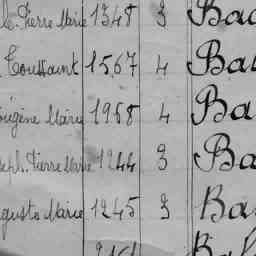 Pierre Marie 1348 3 Bad
Toussaint 1567 4 Bal
Eugène Marie 1968 4 Ba
Joseph Pierre Marie 1244 3 Ba
Auguste Marie 1245 3 Bas
Bal